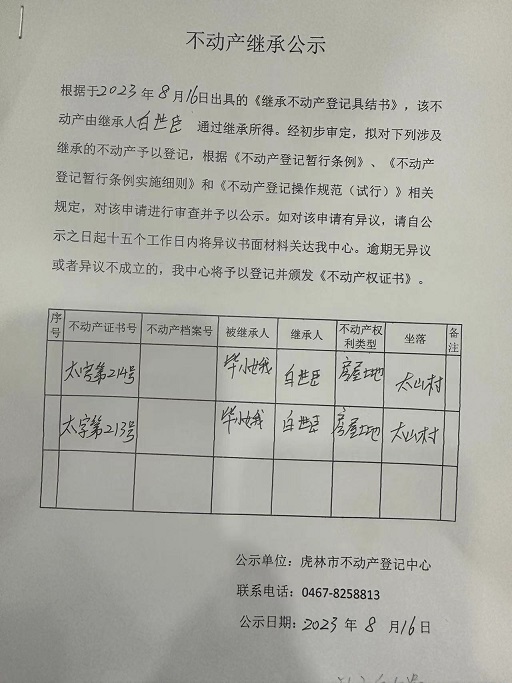 不动产继承公示
根据于2023年8月16日出具的《继承不动产登记具结书》，该不
动产由继承人白世臣 通过继承所得。经初步审定，拟对下列涉及
继承的不动产予以登记，根据《不动产登记暂行条例》、《不动产
登记暂行条例实施细则》和《不动产登记操作规范（试行）》相关
规定，对该申请进行审查并予以公示。如对该申请有异议，请自公
示之日起十五个工作日内将异议书面材料关达我中心。逾期无异议
或者异议不成立的，我中心将予以登记并颁发《不动产权证书》。
序号 不动产证书号 不动产档案号 被继承人 继承人 不动产权利类型 坐落 备注
太字第214号 毕小娥 白世臣 房屋土地 太山村
太字第213号 毕小娥 白世臣 房屋土地 太山村
公示单位：虎林市不动产登记中心
联系电话：0467-8258813
公示日期：2023年8月16日